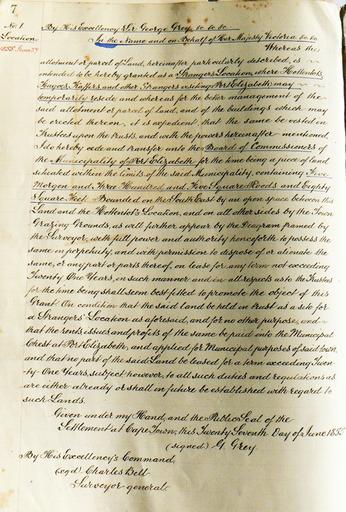 7
No. 1. By His Excellency Sir George Grey &c &c &c
Location. In the Name and on Behalf of Her Majesty Victoria &c &c
Whereas the
allotment or parcel of Land, hereinafter particularly described, is
intended to be hereby granted as a Strangers Location, where Hottentots,
Fingoes, Kaffers and other Strangers visiting Port Elizabeth may
temporarily reside and whereas for the better management of the
said allotment of parcel of land, and of the buildings which may
be erected thereon, it is expedient that the same be vested in
Trustees upon the trusts, and with the powers hereinafter mentioned,
I do hereby cede and transfer unto the Board of Commissioners of
the Municipality of Port Elizabeth for the time being a piece of land
situated within the limits of the said Municipality, containing Five
Morgen and Three Hundred and Five Square Roods and Eighty
Square Feet. Bounded on the South East by an open space between this
Land and the Hottentot's Location, and on all other sides by the Town
Grazing Grounds, as will further appear by the Diagram framed by
the Surveyor, with full power and authority henceforth to possess the
same in perpetuity, and with permission to dispose of or alienate the
same, or any part or parts thereof, on lease for any term not exceeding
Twenty One Years, in such manner and in all respects as to the Trustees
for the time being shall seem best fitted to promote the object of this
Grant. On condition that the said Land be held in Trust as a site for
a Strangers' Location as aforesaid, and for no other purpose, and
that the rents, issues and profits of the same be paid into the Municipal
Chest at Port Elizabeth, and applied for Municipal purposes of said town,
and that no part of the said Land be leased for a term exceeding Twen-
ty-One Years, subject however, to all such duties and regulations as
are either already or shall in future be established with regard to
such Lands.
Given under my Hand, and the Public Seal of the
Settlement at Cape Town, this Twenty Seventh Day of June 1855
(signed) G. Grey.
By His Excellency's Command,
(sgd) Charles Bell
Surveyor general